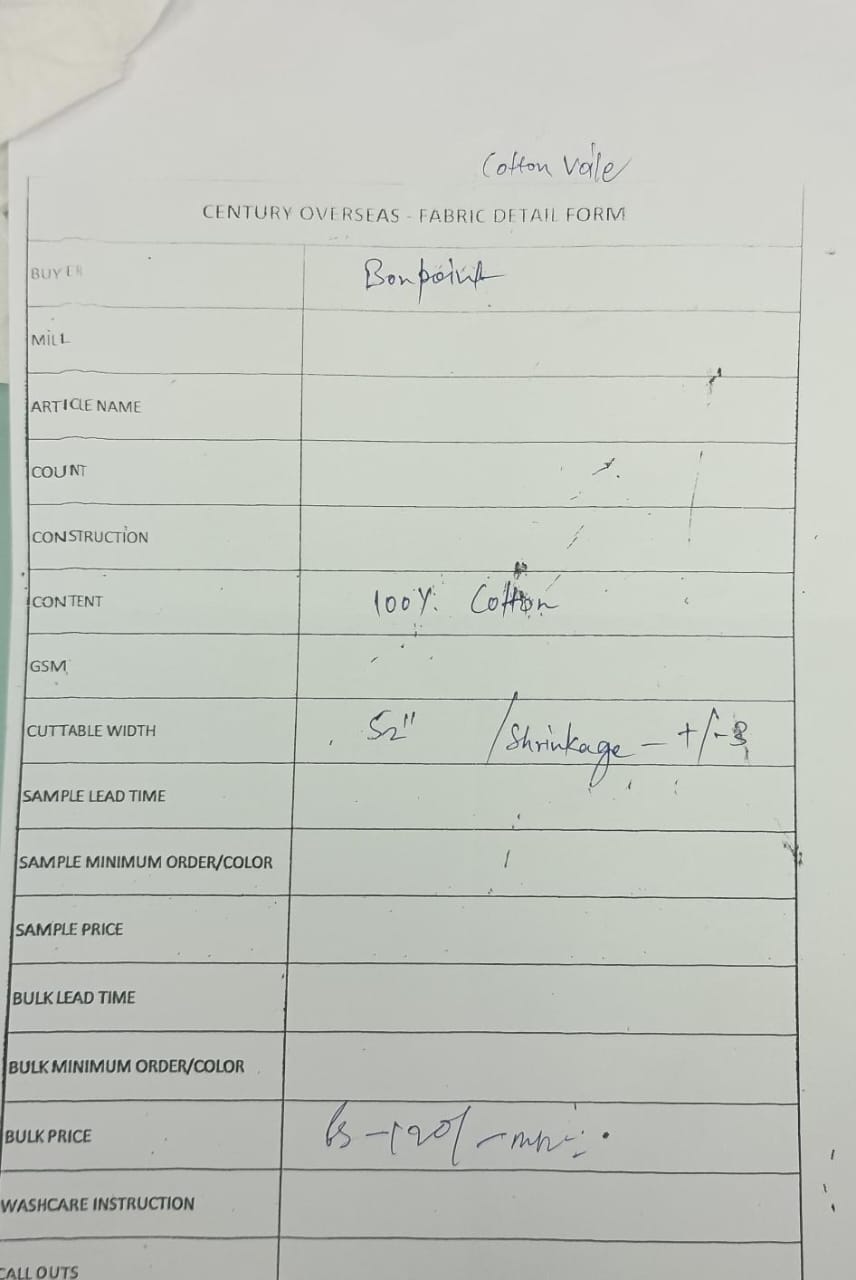 Cotton Voile
CENTURY OVERSEAS - FABRIC DETAIL FORM
BUYER Bonpoint
MILL
ARTICLE NAME
COUNT
CONSTRUCTION
CONTENT 100%. Cotton
GSM
CUTTABLE WIDTH 52" /Shrinkage - +/-3
SAMPLE LEAD TIME
SAMPLE MINIMUM ORDER/COLOR
SAMPLE PRICE
BULK LEAD TIME
BULK MINIMUM ORDER/COLOR
BULK PRICE
WASHCARE INSTRUCTION
CALL OUTS